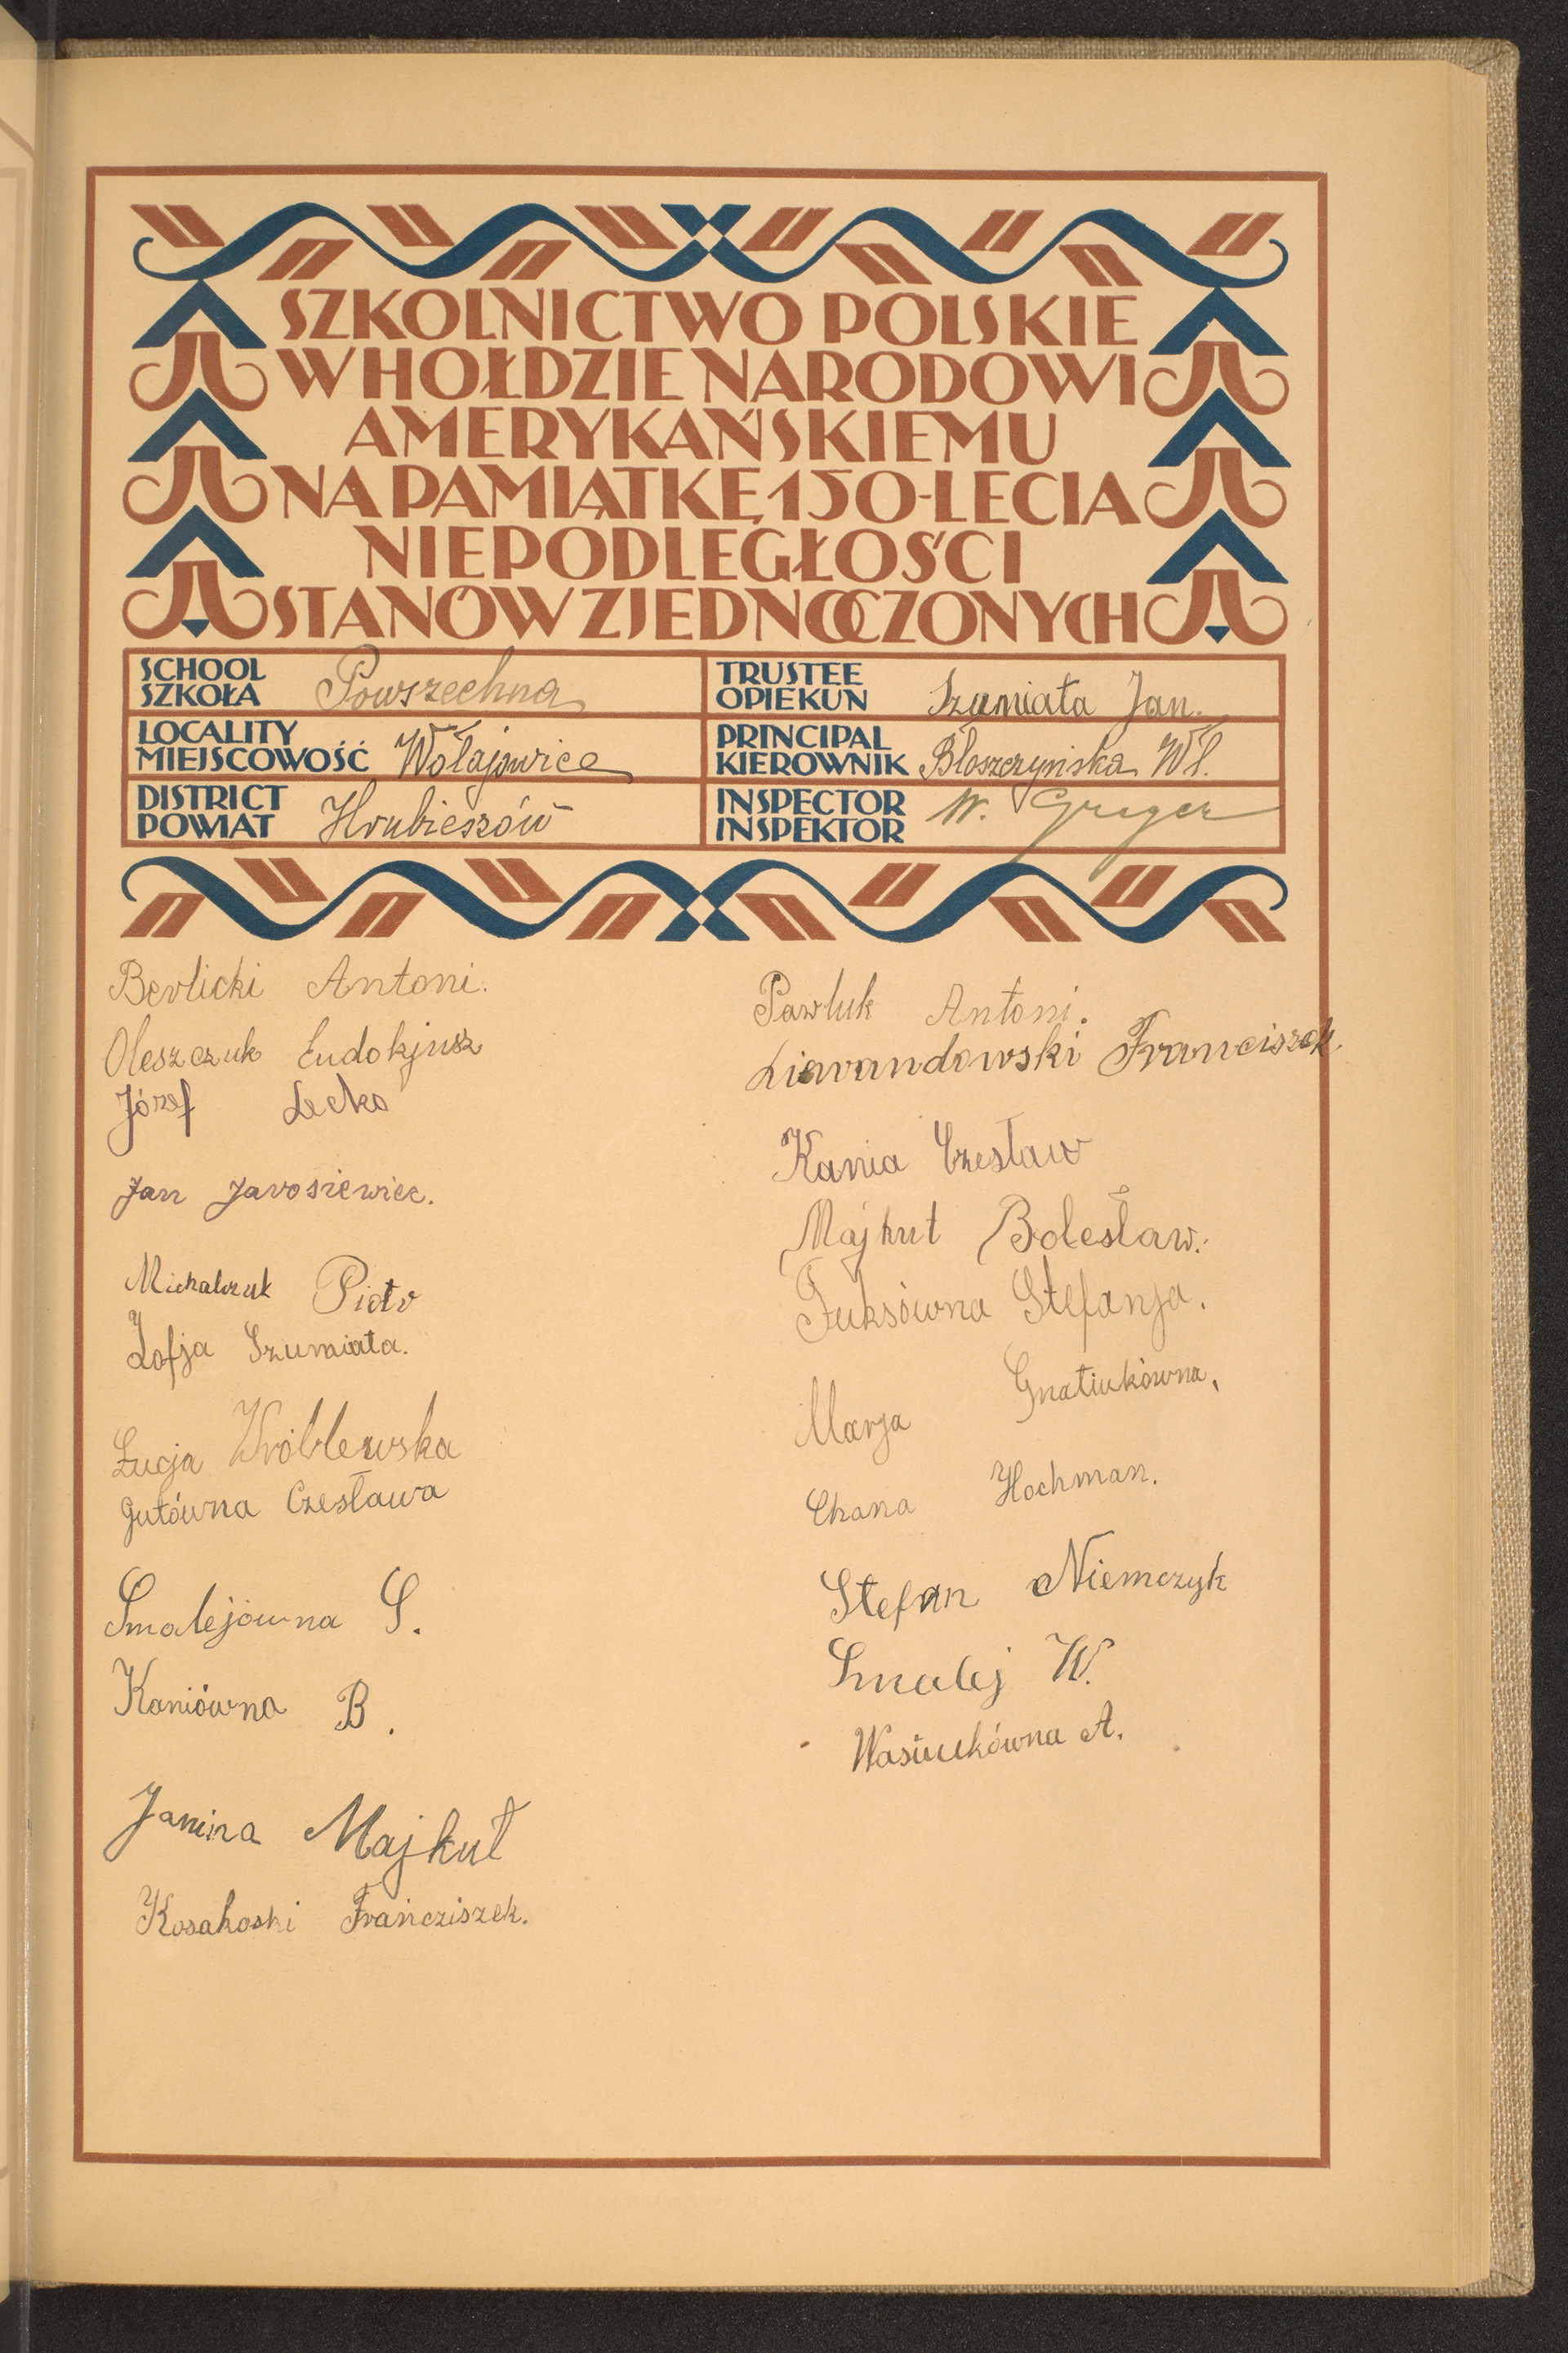 SZKOLNICTWO POLSKIE
W HOŁDZIE NARODOWI
AMERYKAŃSKIEMU
NA PAMIĄTKĘ 150-LECIA
NIEPODLEGŁOŚCI
STANÓW ZJEDNOCZONYCH
SCHOOL
SZKOŁA Powszechna
TRUSTEE
OPIEKUN Szumiata Jan.
LOCALITY
MIEJSCOWOŚĆ Wołajowice
PRINCIPAL
KIEROWNIK Błoszczyńska Wł.
DISTRICT
POWIAT Hrubieszów
INSPECTOR
INSPEKTOR W. Greger
Berlicki Antoni.
Oleszczuk Eudokjusz
Józef Lecko
Jan Jarosiewicz.
Michalczuk Piotr
Zofja Szumiata.
Łucja Wróblewska
Gutówna Czesława
Smalejówna S.
Kaniówna B.
Janina Majkut
Kosakoski Franciszek.
Pawluk Antoni.
Liewandowski Franciszek.
Kania Czesław
Majkut Bolesław.
Fuksówna Stefanja.
Marja Gnatiukówna,
Chana Hochman.
Stefan Niemczyk
Smalej W.
Wasiuukówna A.